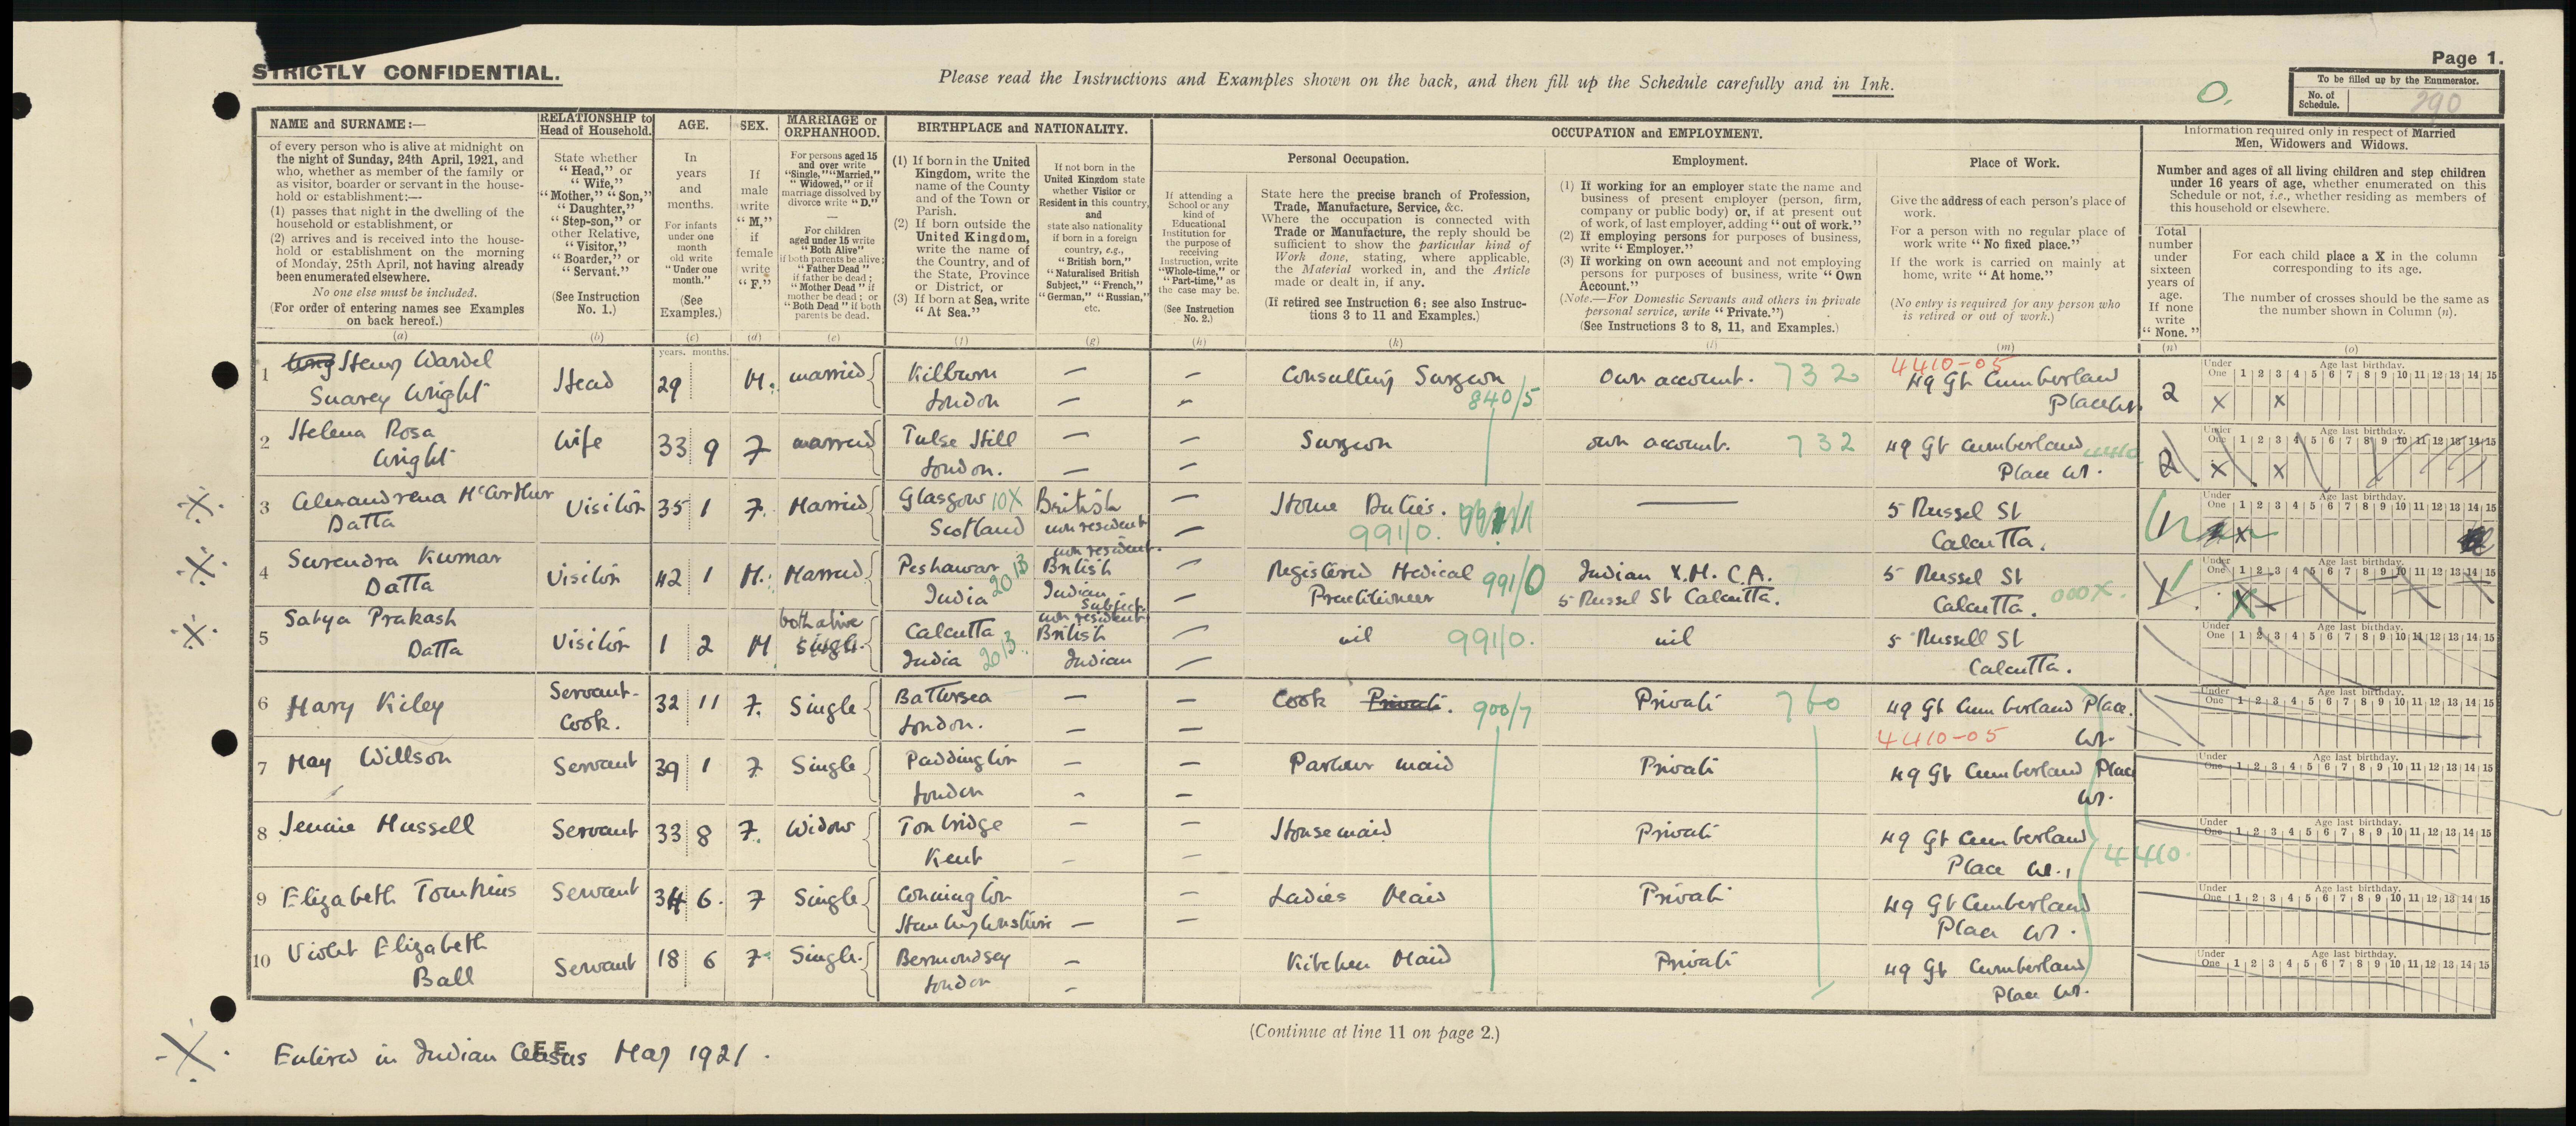 STRICTLY CONFIDENTIAL.
Please read the Instructions and Examples shown on the back, and then fill up the Schedule carefully and in Ink.
Page 1.
To be filled up by the Enumerator.
No. of Schedule. 290
O.
NAME and SURNAME:—
of every person who is alive at midnight on
the night of Sunday, 24th April, 1921, and
who, whether as member of the family or
as visitor, boarder or servant in the house-
hold or establishment:—
(1) passes that night in the dwelling of the
household or establishment, or
(2) arrives and is received into the house-
hold or establishment on the morning
of Monday, 25th April, not having already
been enumerated elsewhere.
No one else must be included.
(For order of entering names see Examples
on back hereof.)
(a)
RELATIONSHIP to
Head of Household.
State whether
"Head," or
"Wife,"
"Mother," "Son,"
"Daughter,"
"Step-son," or
other Relative,
"Visitor,"
"Boarder," or
"Servant."
(See Instruction
No. 1.)
(b)
AGE.
In
years
and
months.
For infants
under one
month
old write
"Under one
month."
(See
Examples.)
(c)
years. months.
SEX.
If
male
write
"M,"
if
female
write
"F."
(d)
MARRIAGE or
ORPHANHOOD.
For persons aged 15
and over write
"Single," "Married,"
"Widowed," or if
marriage dissolved by
divorce write "D."
—
For children
aged under 15 write
"Both Alive"
if both parents be alive;
"Father Dead"
if father be dead;
"Mother Dead" if
mother be dead; or
"Both Dead" if both
parents be dead.
(e)
BIRTHPLACE and NATIONALITY.
(1) If born in the United
Kingdom, write the
name of the County
and of the Town or
Parish.
(2) If born outside the
United Kingdom,
write the name of
the Country, and of
the State, Province
or District, or
(3) If born at Sea, write
"At Sea."
(f)
If not born in the
United Kingdom state
whether Visitor or
Resident in this country,
and
state also nationality
if born in a foreign
country, e.g.,
"British born,"
"Naturalised British
Subject," "French,"
"German," "Russian,"
etc.
(g)
OCCUPATION and EMPLOYMENT.
If attending a
School or any
kind of
Educational
Institution for
the purpose of
receiving
Instruction, write
"Whole-time," or
"Part-time," as
the case may be.
(See Instruction
No. 2.)
(h)
Personal Occupation.
State here the precise branch of Profession,
Trade, Manufacture, Service, &c.
Where the occupation is connected with
Trade or Manufacture, the reply should be
sufficient to show the particular kind of
Work done, stating, where applicable,
the Material worked in, and the Article
made or dealt in, if any.
(If retired see Instruction 6; see also Instruc-
tions 3 to 11 and Examples.)
(k)
Employment.
(1) If working for an employer state the name and
business of present employer (person, firm,
company or public body) or, if at present out
of work, of last employer, adding "out of work."
(2) If employing persons for purposes of business,
write "Employer."
(3) If working on own account and not employing
persons for purposes of business, write "Own
Account."
(Note.—For Domestic Servants and others in private
personal service, write "Private.")
(See Instructions 3 to 8, 11, and Examples.)
(l)
Place of Work.
Give the address of each person's place of
work.
For a person with no regular place of
work write "No fixed place."
If the work is carried on mainly at
home, write "At home."
(No entry is required for any person who
is retired or out of work.)
(m)
Information required only in respect of Married
Men, Widowers and Widows.
Number and ages of all living children and step children
under 16 years of age, whether enumerated on this
Schedule or not, i.e., whether residing as members of
this household or elsewhere.
Total
number
under
sixteen
years of
age.
If none
write
"None."
(n)
For each child place a X in the column
corresponding to its age.
The number of crosses should be the same as
the number shown in Column (n).
(o)
Under One Age last birthday. 1 2 3 4 5 6 7 8 9 10 11 12 13 14 15
1 Henry Wardel Suarey Wright Head 29 M. married Kilburn London — — Consulting Surgeon 840/5 Own account. 732 4410-05 49 Gt Cumberland Place W1. 2 X X
2 Helena Rosa Wright Wife 33 9 F married Tulse Hill London. — — Surgeon own account. 732 49 Gt Cumberland Place W1. 4410 2 X X
3 Alexandrena McArthur Datta Visitor 35 1 F. Married Glasgow 10X Scotland British non resident — Home Duties. 991/0. — 5 Russel St Calcutta. 1 X
4 Surendra Kumar Datta Visitor 42 1 M. Married Peshawar India 2013 non resident. British Indian Subject — Registered Medical Practitioner 991/0 Indian Y.M.C.A. 5 Russel St Calcutta. 5 Russel St Calcutta. 000X. 1 X
5 Satya Prakash Datta Visitor 1 2 M both alive Single. Calcutta India 2013. non resident British Indian — nil 991/0. nil 5 Russell St Calcutta.
6 Mary Kiley Servant-Cook. 32 11 F. Single Battersea London. — — Cook Private. 900/7 Private 760 49 Gt Cumberland Place. W1. 4410-05
7 May Willson Servant 39 1 F Single Paddington London — — Parlour maid Private 49 Gt Cumberland Place W1.
8 Jennie Hussell Servant 33 8 F. Widow Tonbridge Kent — — Housemaid Private 49 Gt Cumberland Place W.1 4410.
9 Elizabeth Tomkins Servant 34 6. F Single Connington Huntingdonshire — — Ladies Maid Private 49 Gt Cumberland Place W1.
10 Violet Elizabeth Ball Servant 18 6 F Single. Bermondsey London — Kitchen Maid Private 49 Gt Cumberland Place W1.
(Continue at line 11 on page 2.)
Entered in Indian Census May 1921.
EE